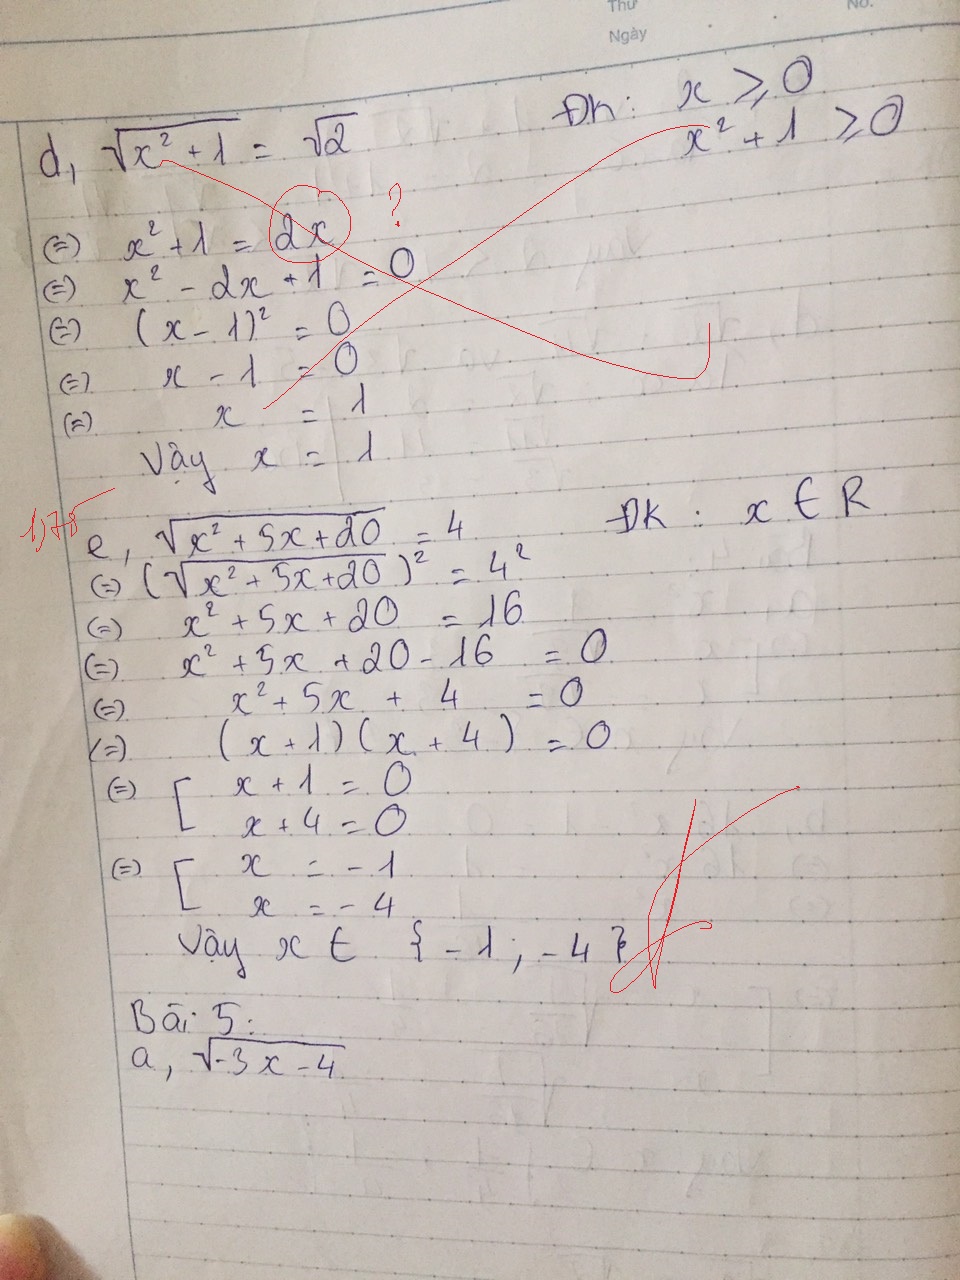 Thứ
No.
Ngày
d, √(x² + 1) = √2 Đk: x ≥ 0
x² + 1 ≥ 0
(=) x² + 1 = 2x ?
(=) x² - 2x + 1 = 0
(=) (x - 1)² = 0
(=) x - 1 = 0
(=) x = 1
Vậy x = 1
1,75
e, √(x² + 5x + 20) = 4 ĐK : x ∈ R
(=) (√(x² + 5x + 20))² = 4²
(=) x² + 5x + 20 = 16
(=) x² + 5x + 20 - 16 = 0
(=) x² + 5x + 4 = 0
(=) (x + 1)(x + 4) = 0
(=) [ x + 1 = 0
x + 4 = 0
(=) [ x = -1
x = -4
Vậy x ∈ {-1; -4}
Bài 5:
a, √(-3x - 4)